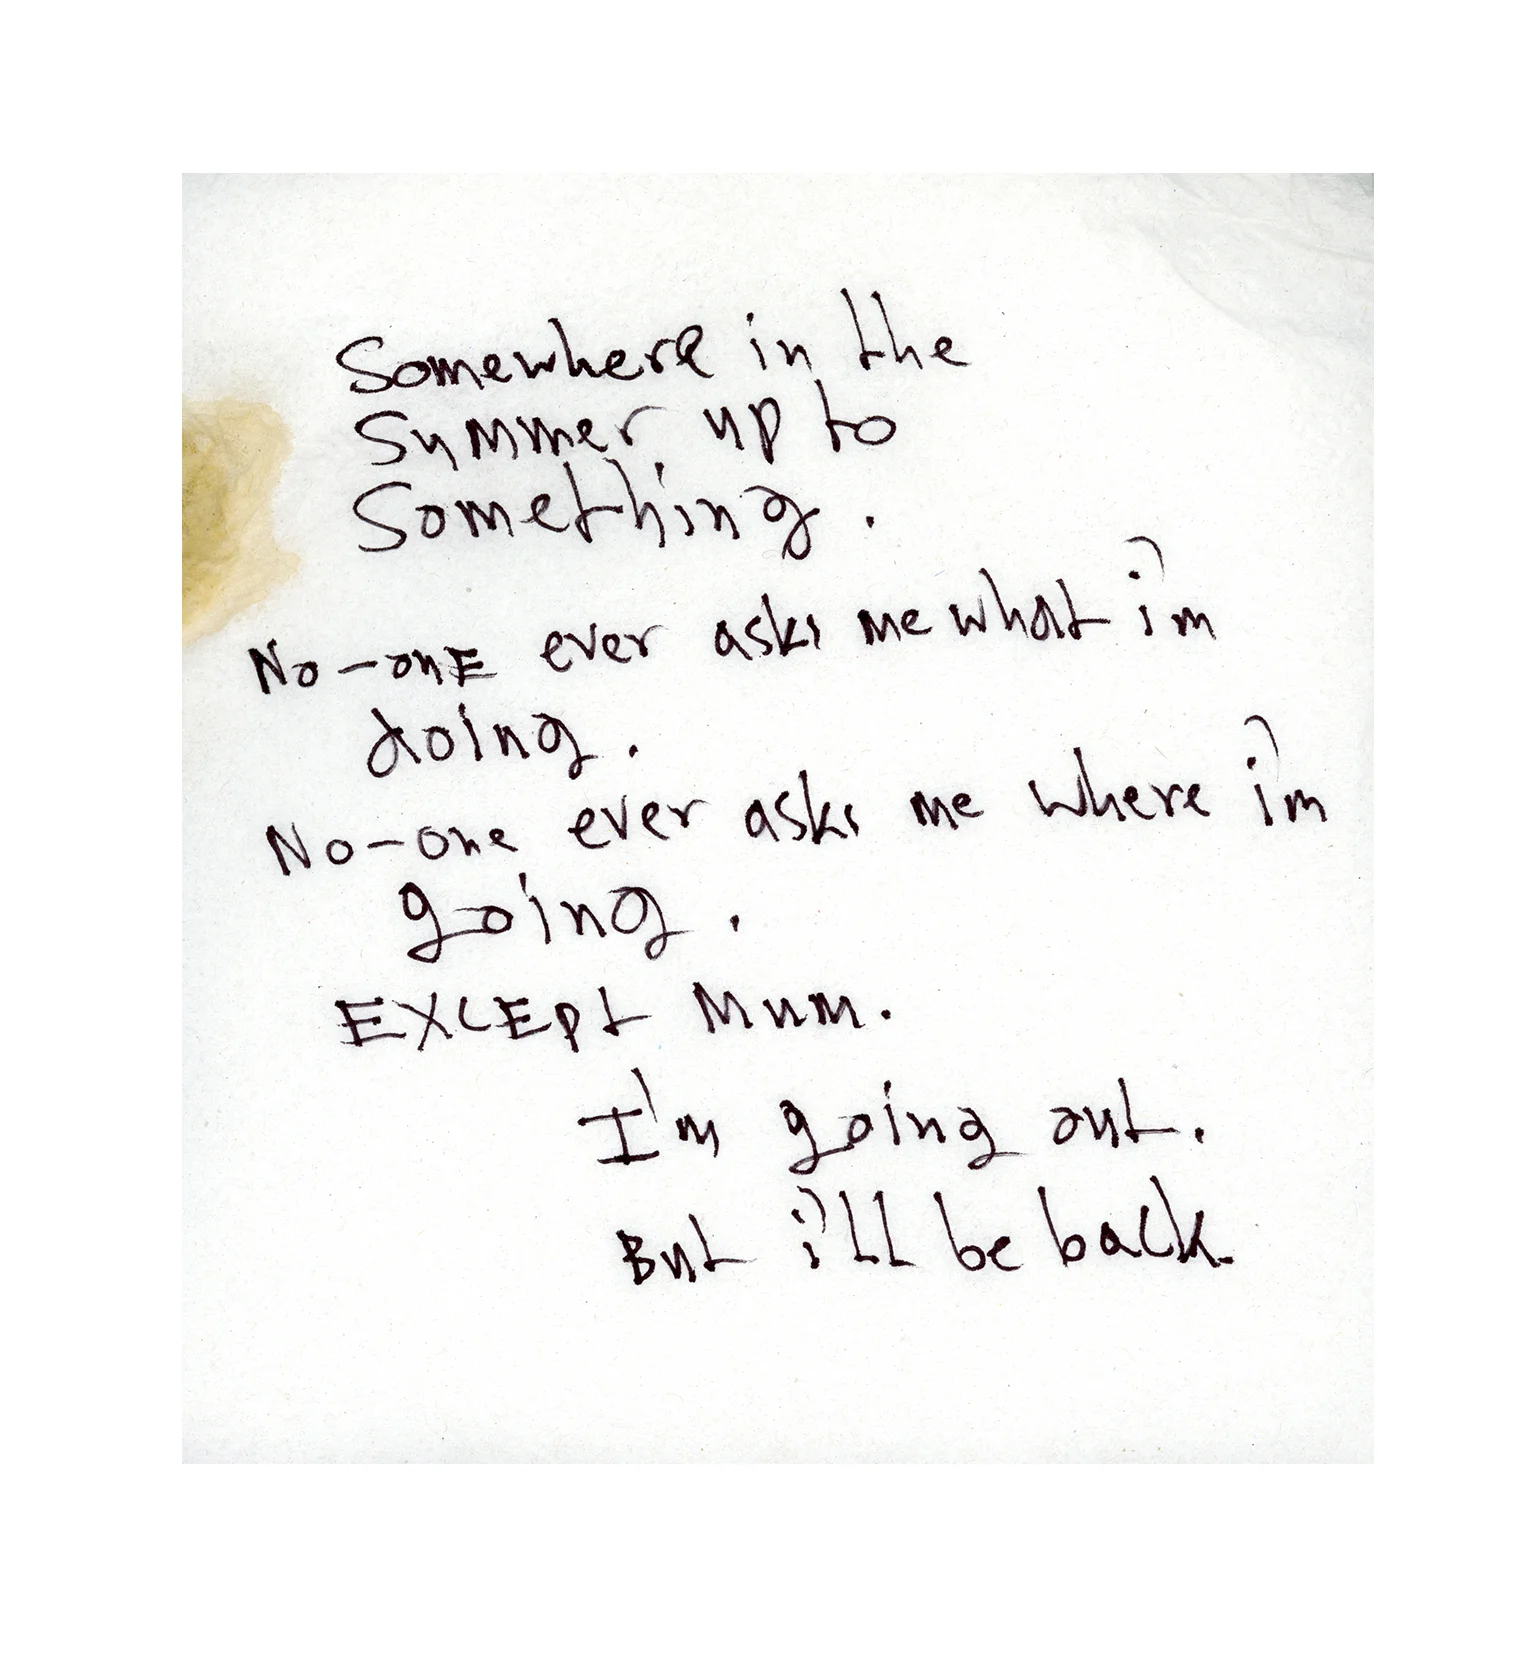 Somewhere in the
Summer up to
Something.
No-onE ever asks me what i'm
doing.
No-one ever asks me where i'm
going.
EXCEpt Mum.
I'm going out.
But i'll be back.